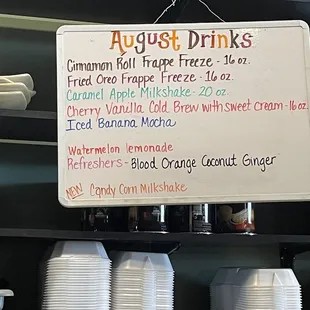 August Drinks
Cinnamon Roll Frappe Freeze - 16 oz.
Fried Oreo Frappe Freeze - 16 oz.
Caramel Apple Milkshake - 20 oz.
Cherry Vanilla Cold Brew with sweet cream - 16 oz.
Iced Banana Mocha
Watermelon lemonade
Refreshers - Blood Orange Coconut Ginger
NEW Candy Corn Milkshake